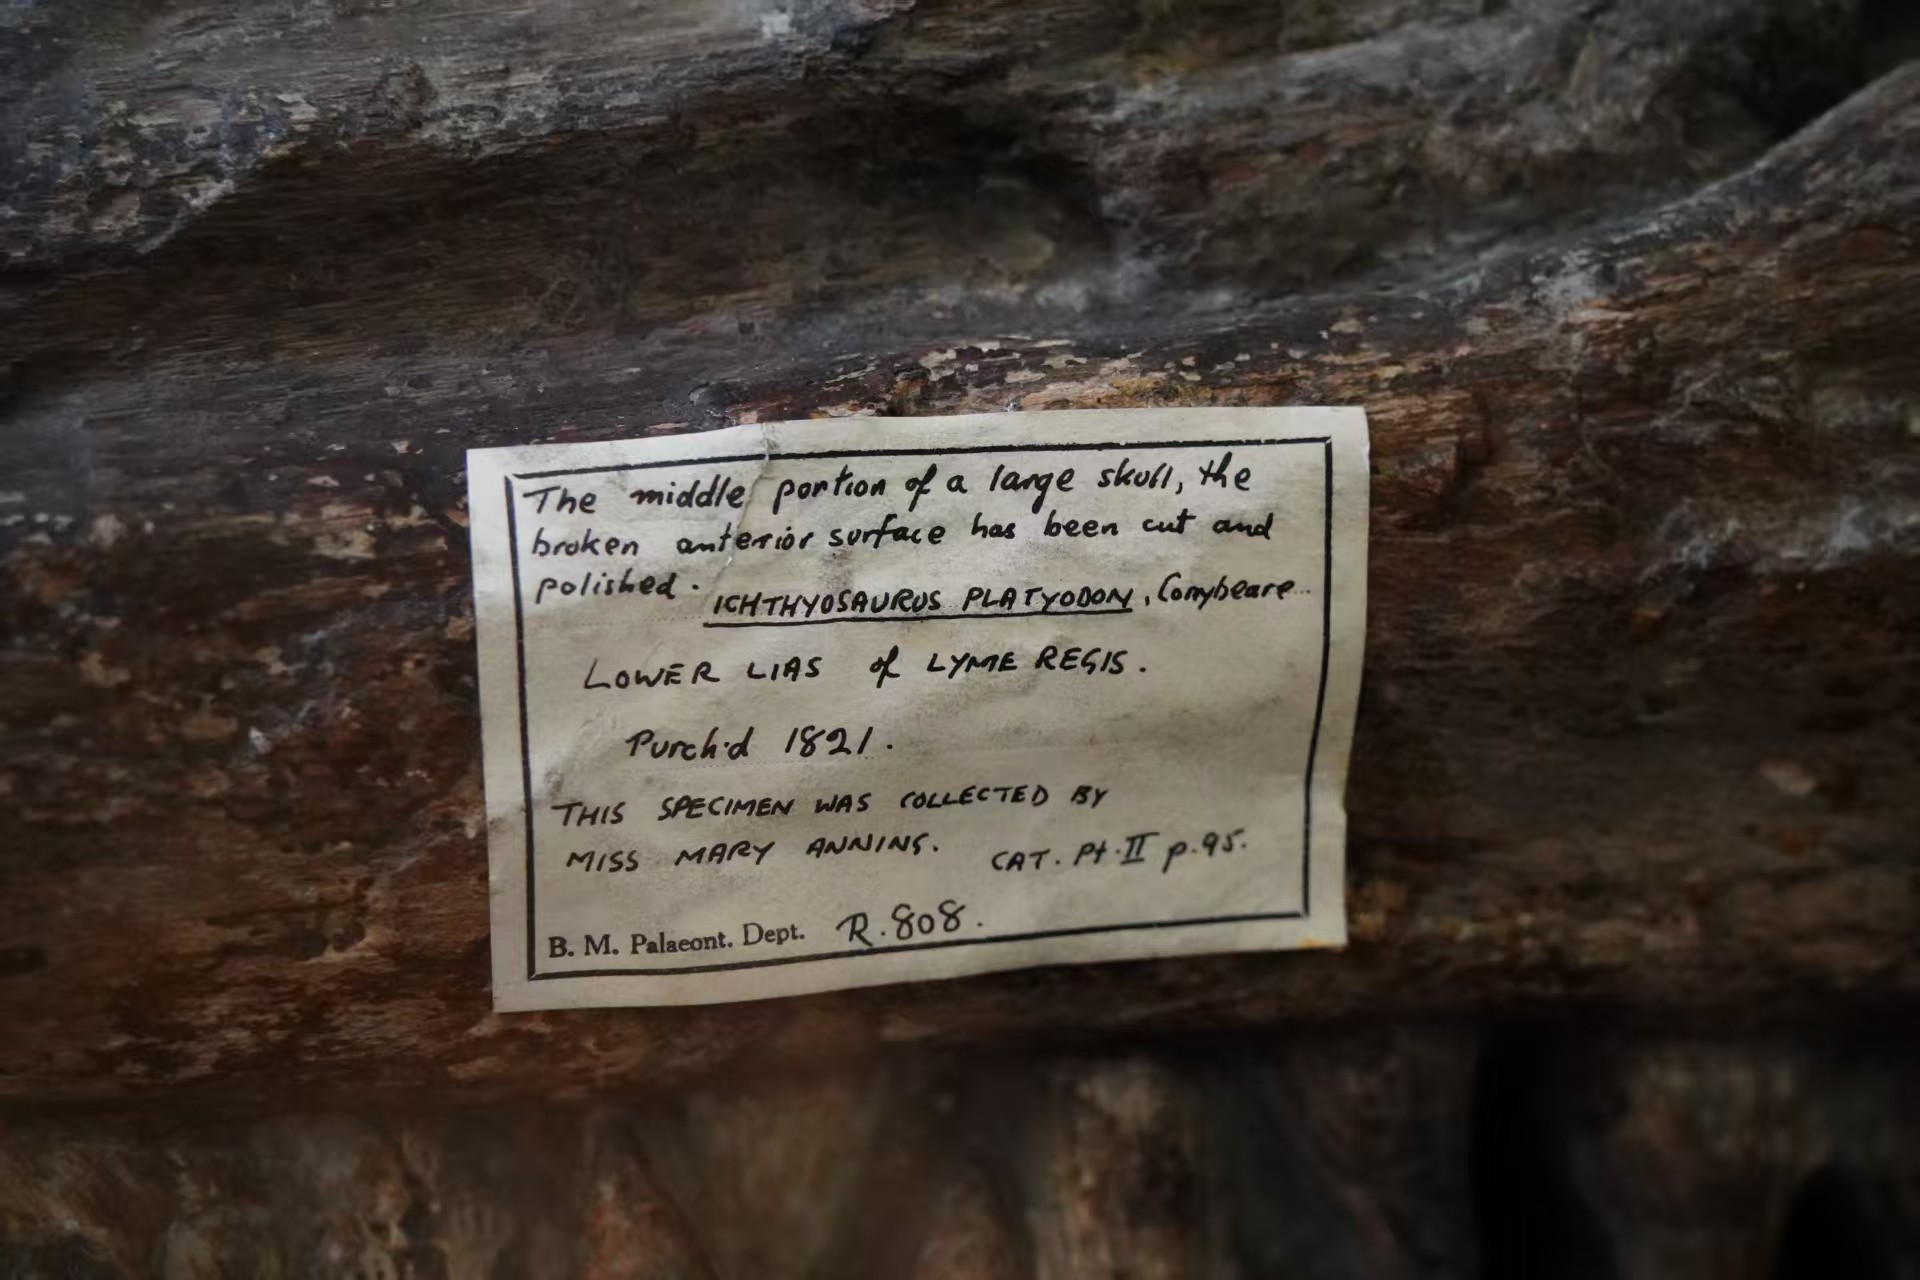 The middle portion of a large skull, the
broken anterior surface has been cut and
polished. ICHTHYOSAURUS PLATYODON, Conybeare
LOWER LIAS of LYME REGIS.
Purch'd 1821.
THIS SPECIMEN WAS COLLECTED BY
MISS MARY ANNING. CAT. Pt. II p.95.
B. M. Palaeont. Dept. R.808.